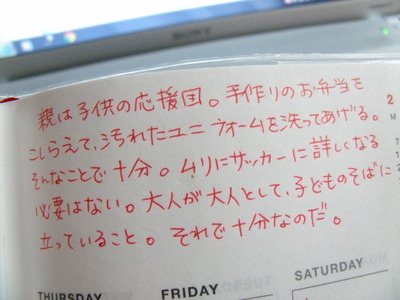 SONY
親は子供の応援国。手作りのお弁当を
こしらえて、汚れたユニウォームを洗ってあげる。
そんなことで十分。ムリにサッカーに詳しくなる
必要はない。大人が大人として、子どものそばに
立っていること。それで十分なのだ。
2
M
THURSDAY
FRIDAY
SATURDAY